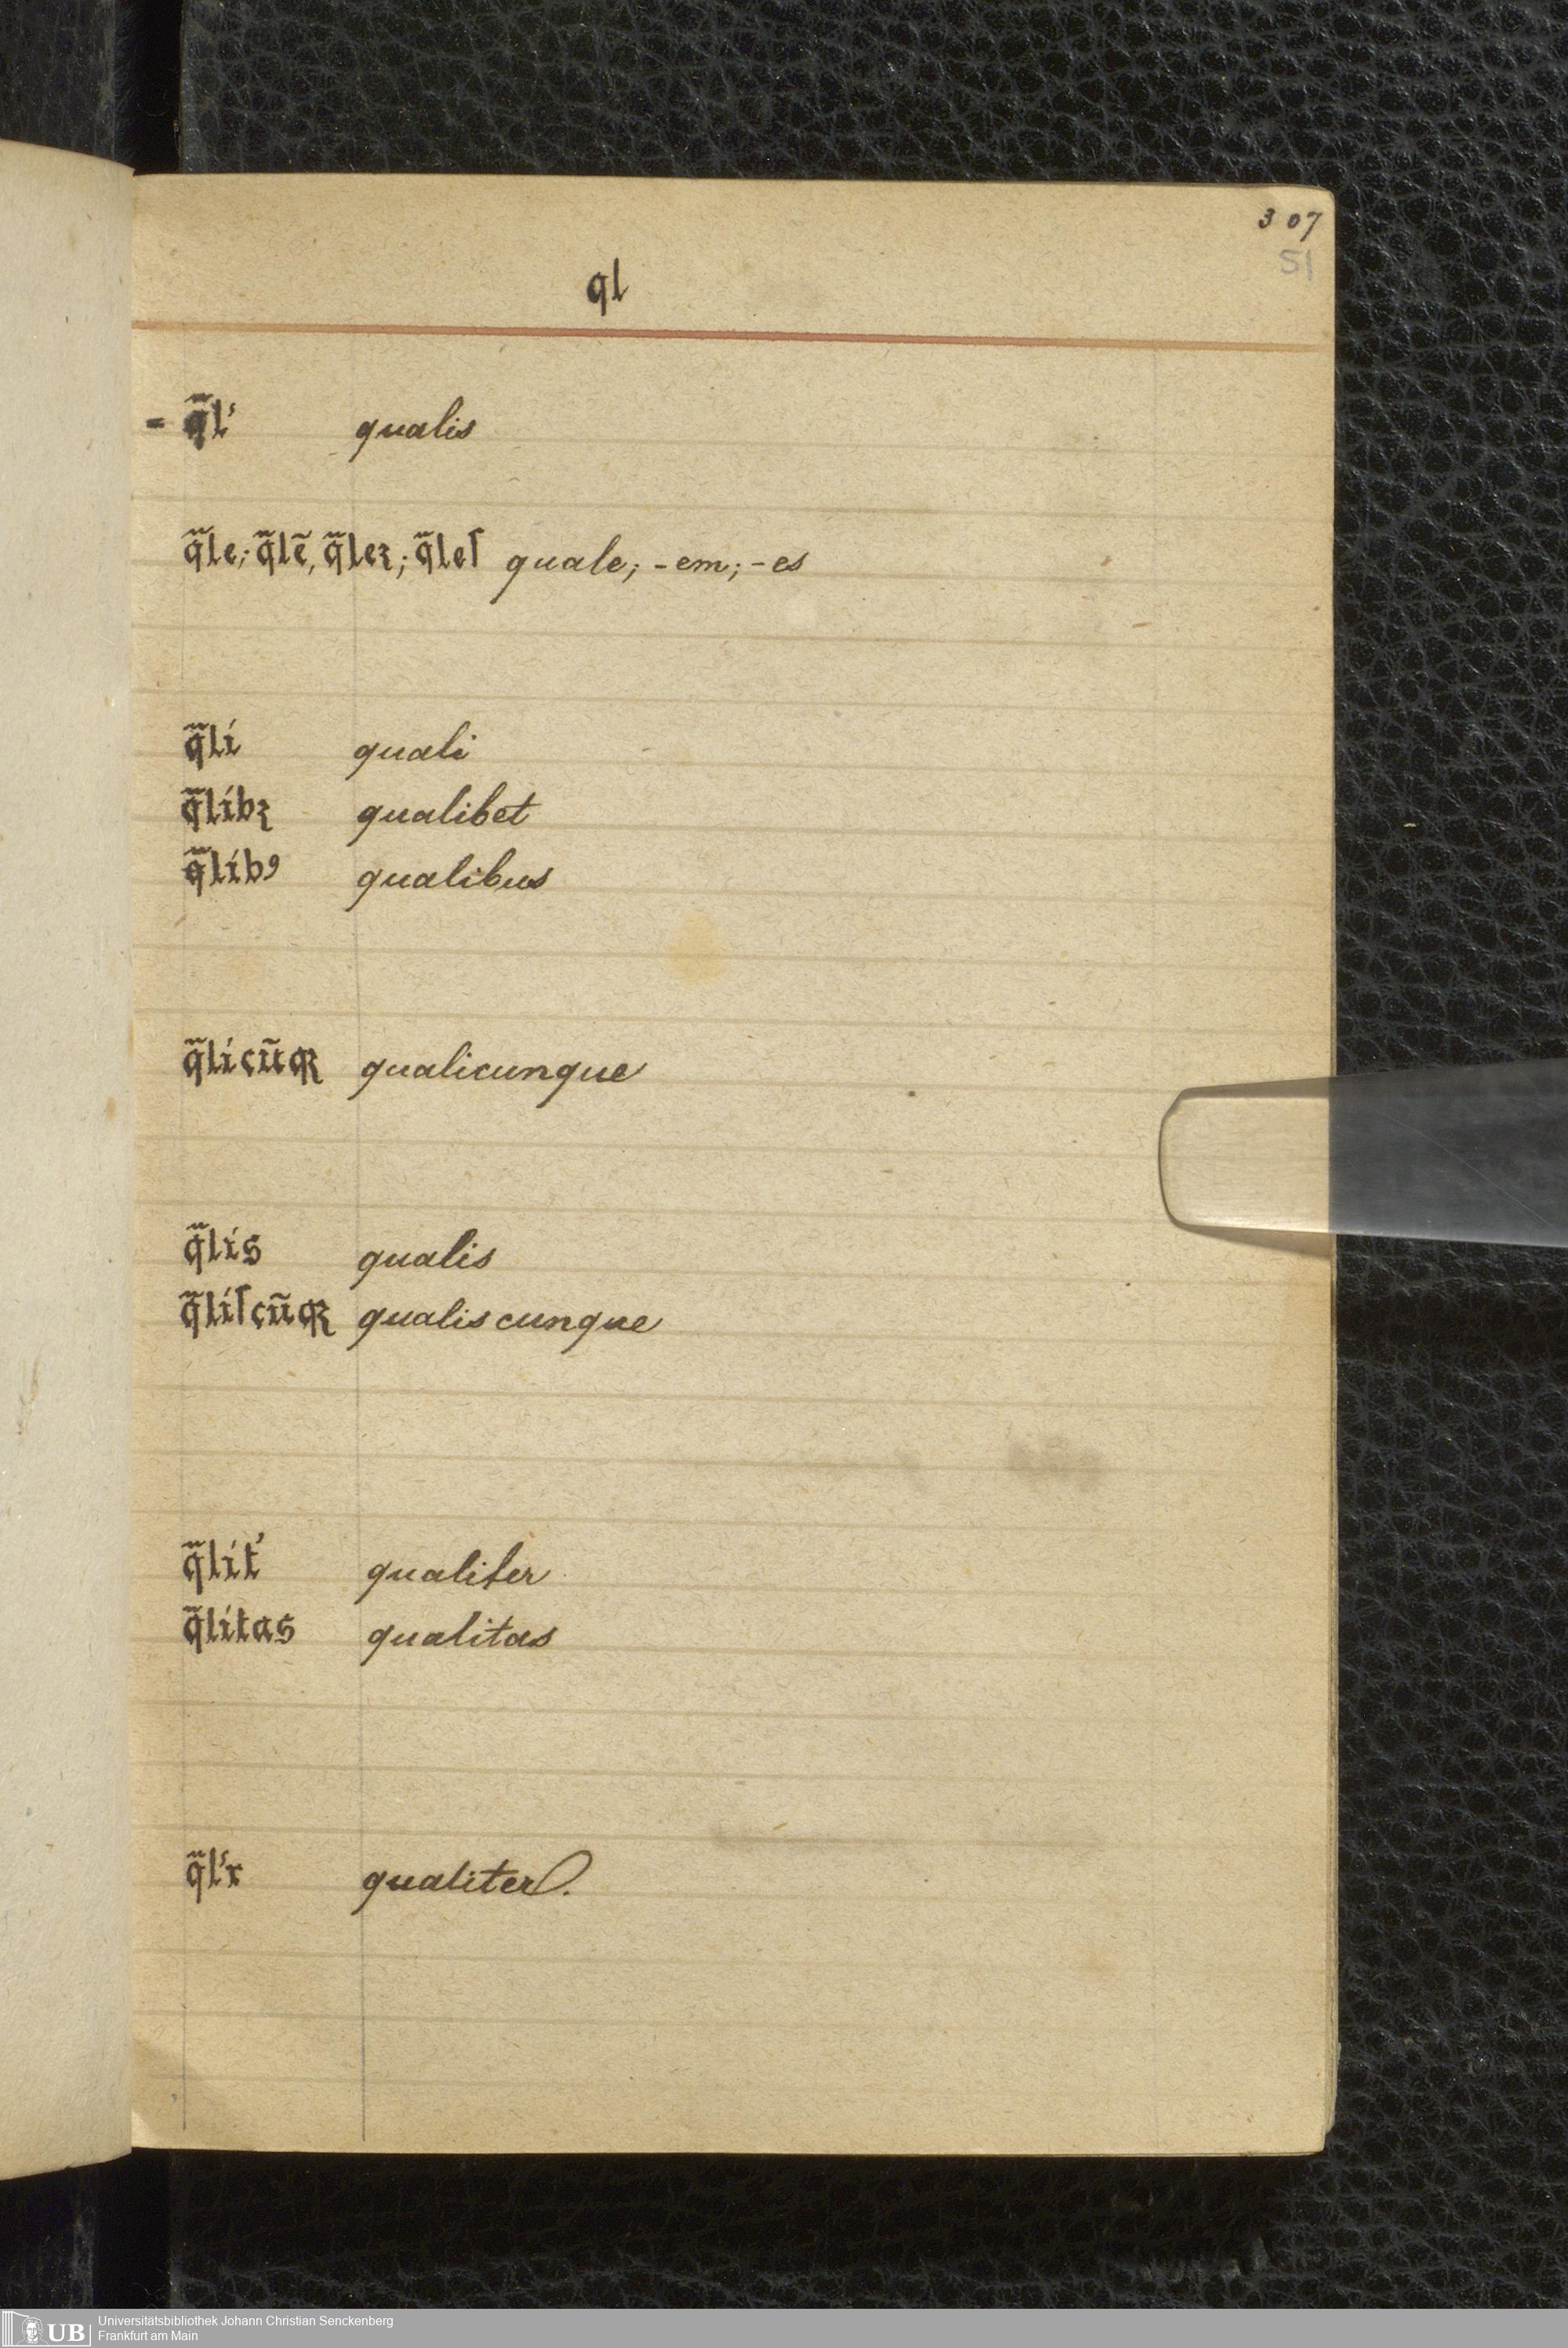 307
51
ql
- q̃l' qualis
q̃le; q̃lẽ, q̃leꝫ; q̃leſ quale; -em; -es
q̃li quali
q̃libꝫ qualibet
q̃libꝰ qualibus
q̃licũqꝫ qualicunque
q̃lis qualis
q̃liſcũqꝫ qualiscunque
q̃lit' qualiter
q̃litas qualitas
q̃l'r qualiter.
UB Universitätsbibliothek Johann Christian Senckenberg
Frankfurt am Main